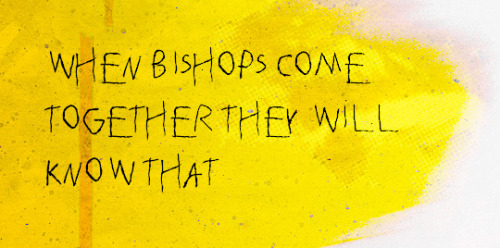 WHEN BISHOPS COME
TOGETHER THEY WILL
KNOW THAT